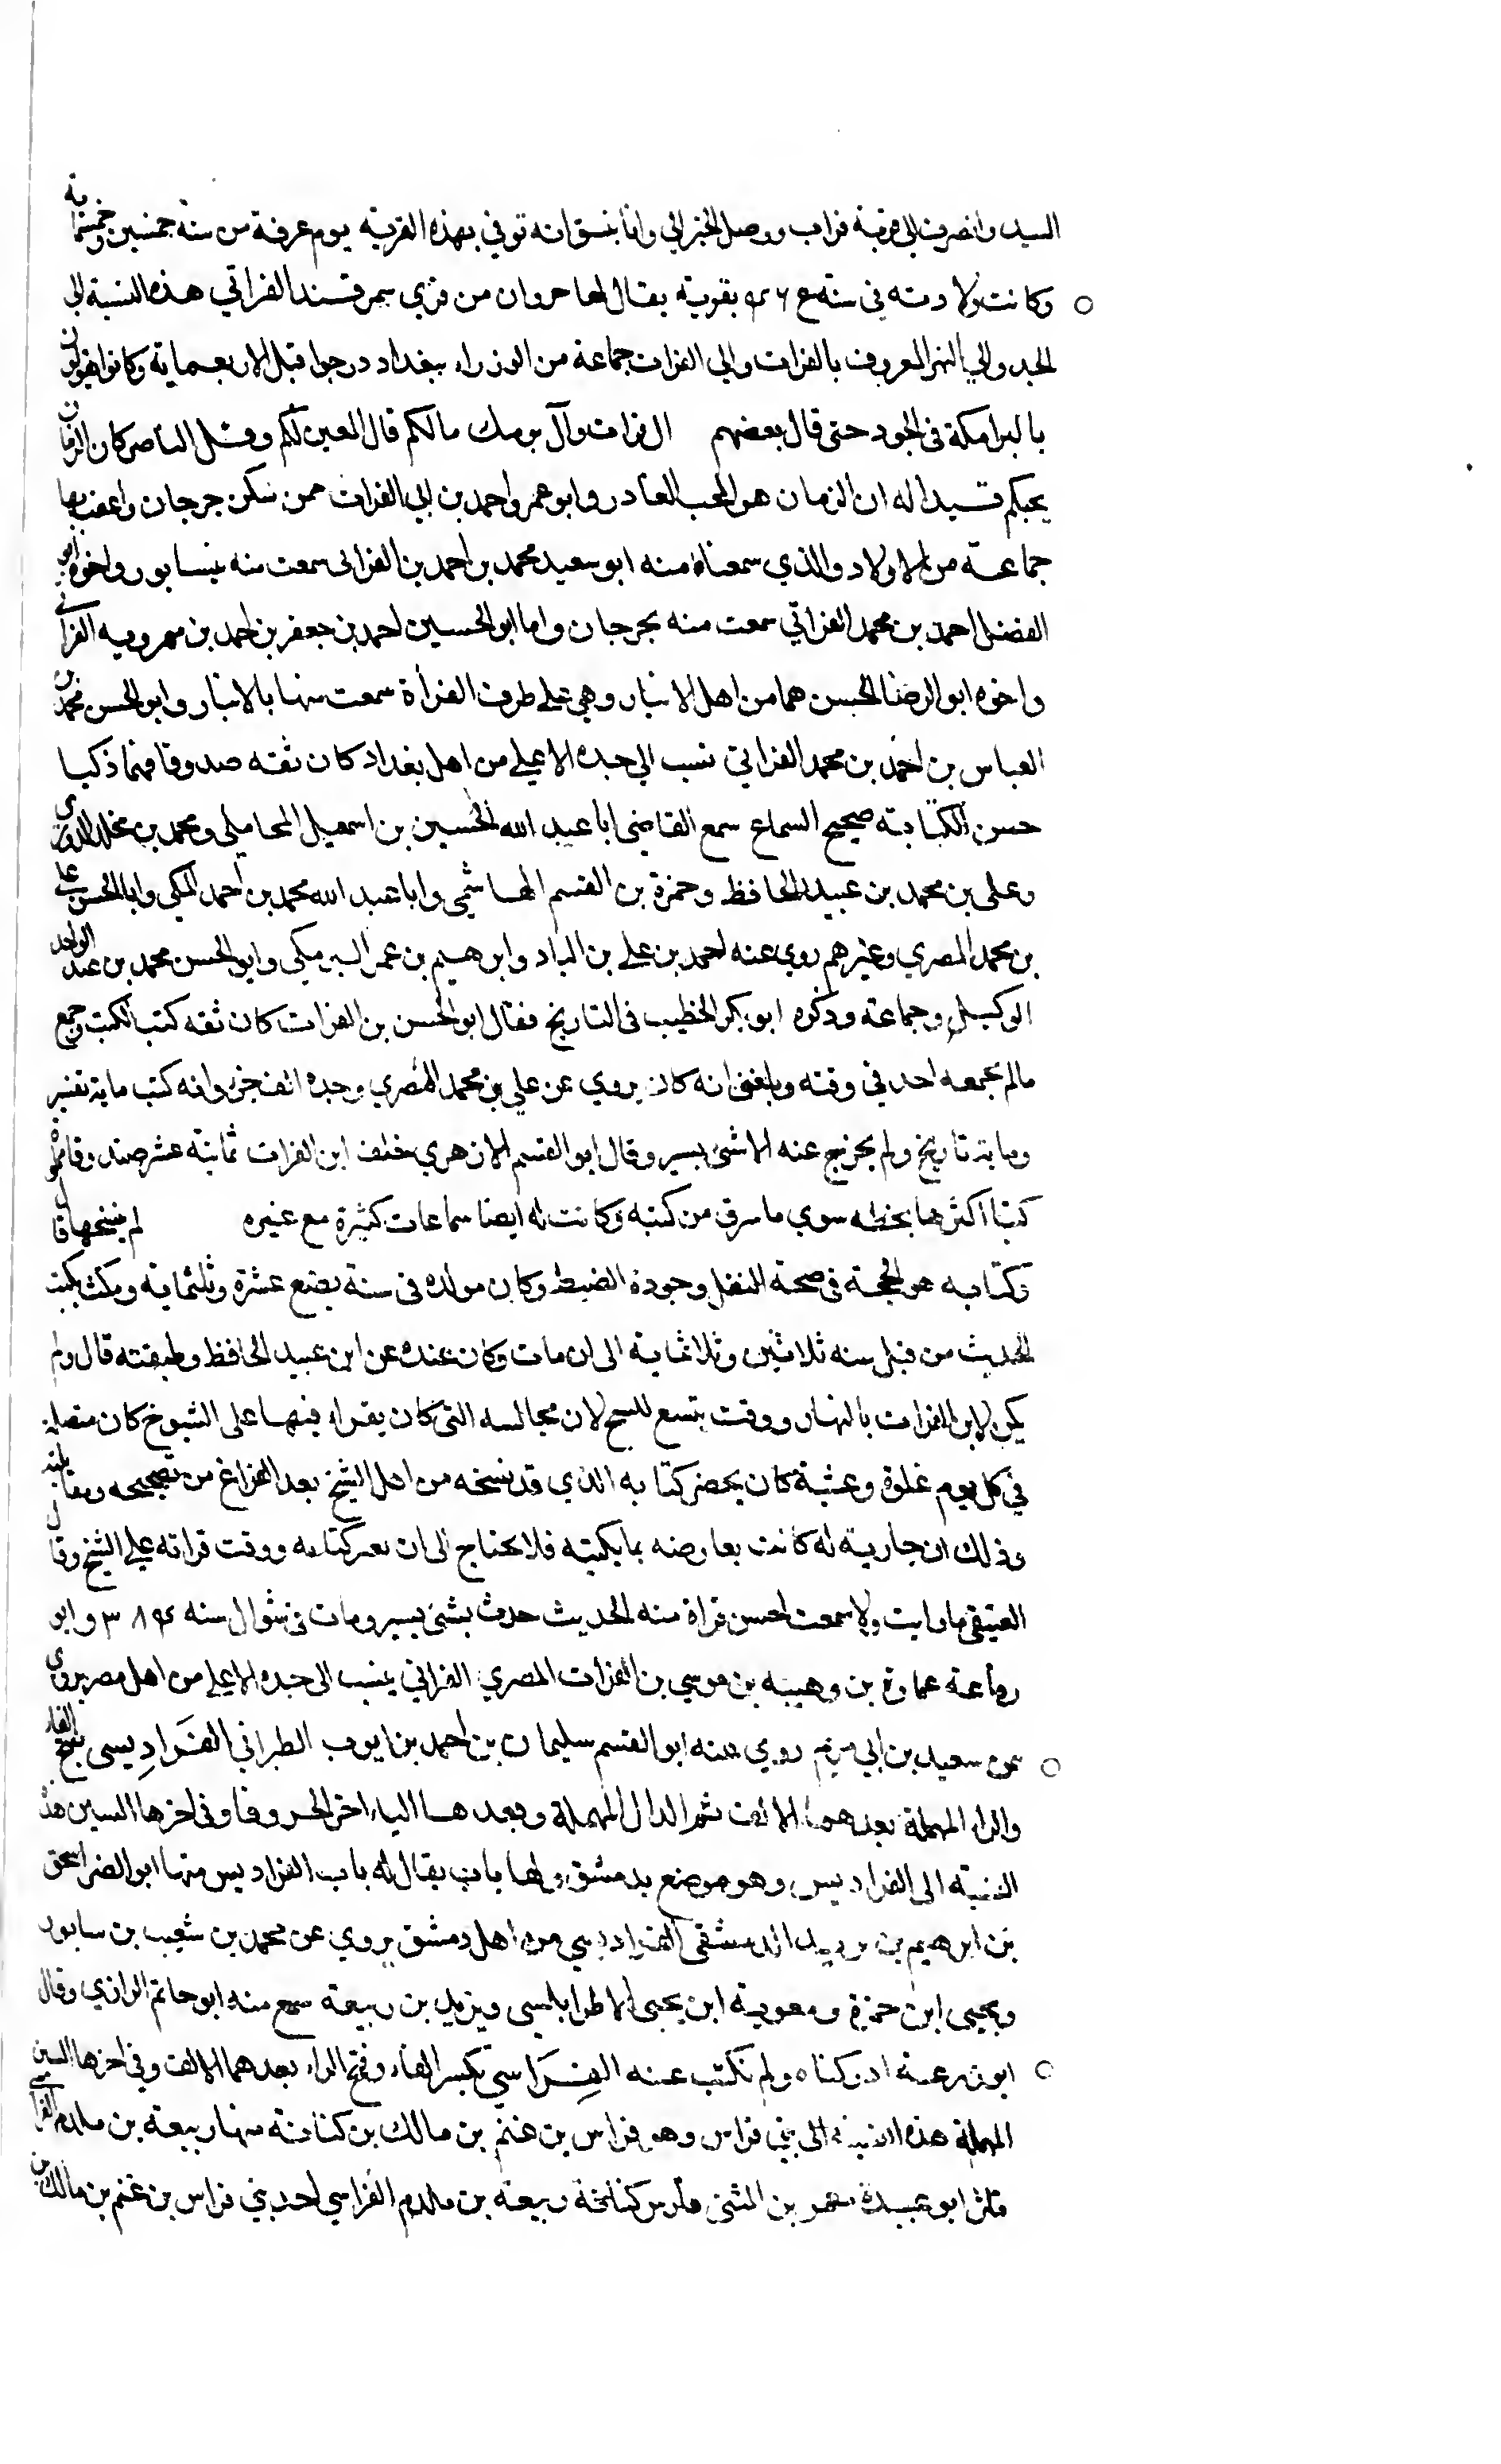 السيد وانصرف الى قرية فراب ووصل الخبر الي وانا بنسف انه توفي بهذه القرية يوم عرفة من سنة خمسين وخمسماية
وكانت ولادته في سنة بقرية يقال لها من قري سمرقند الفراتي هذه النسبة الى
الجد والي النهر المعروف بالفرات والي الفرات جماعة من الوزراء ببغداد درجوا قبل الاربعماية وكانوا يقولون
بالبرامكة في الجود حتى قال بعضهم ال فرات وآل برمك مالكم قال المعين لكم وقتل الناصر كان الزمان
يحبكم له ان الزمان هو المحب الغادر وابو عمرو احمد بن ابي الفرات ممن سكن جرجان واعقب بها
جماعة من الاولاد والذي سمعناه منه ابو سعيد محمد بن احمد بن الفراتي سمعت منه نيسابور واخوه ابو
الفضل احمد بن محمد الفراتي سمعت منه بجرجان واما ابو الحسين احمد بن جعفر بن احمد بن مهرويه الفراتي
واخوه ابو الرضا الحسن هما من اهل الانبار وهي على طرف الفرأة سمعت منها بالانبار وابو الحسن محمد بن
العباس بن احمد بن محمد الفراتي نسب الي جده الاعلي من اهل بغداد كان ثقه صدوقا فهما ذكيا
حسن الكتابة صحيح السماع سمع القاضي ابا عبد الله الحسين بن اسمعيل المحاملي ومحمد بن مخلد الدوري
وعلي بن محمد بن عبيد الحافظ وحمزة بن القسم الهاشمي وابا عبد الله محمد بن احمد الحكي وابا الحسن علي
بن محمد المصري وغيرهم روي عنه احمد بن علي بن الباد وابرهيم بن عمر البرمكي وابو الحسن محمد بن عبد الواحد
الوكيل وجماعة وذكره ابو بكر الخطيب في التاريخ فقال ابو الحسن بن الفرات كان ثقه كتب الكتب وجمع
مالم يجمعه احد في وقته وبلغني انه كان يروي عن علي بن محمد المصري وحده الف جزء وانه كتب ماية تفسير
وماية تاريخ ولم يخرج عنه الا شئ يسير وقال ابو القسم الازهري خلف ابن الفرات ثمانية عشر صندوقا مملوه
كتبا اكثرها بخطه سوي ما سرق من كتبه وكانت له ايضا سماعات كثيرة مع غيره لم ينسخها قال
وكتابه هو الحجة في صحة النقل وجودة الضبط وكان مولده في سنة بضع عشرة وثلثماية ومكث يكتب
الحديث من قبل سنه ثلاثين وثلاثماية الى ان مات وكان عنده عن ابن عبيد الحافظ وطبقته قال ولم
يكن لابن الفرات بالنهار ووقت يتسع للنسخ لان مجالسه التي كان يقراء فيها على الشيوخ كان متصلة
في كل يوم غدوة وعشية كان يحضر كتابه الذي قد نسخه من اصل الشيخ بعد الفراغ من تصحيحه ومقابلته
وذلك ان جارية له كانت تعارضه بما يكتبه فلا يحتاج الى ان يغير كتابه ووقت قراته علي الشيخ وقال
العتيقي ما رايت ولا سمعت احسن قراة منه للحديث حدث بشئ يسير ومات في شوال سنه ٣٨٤ وابو
رماعة عمارة بن وهيبه بن موسي بن الفرات المصري الفراتي ينسب الى جده الاعلي من اهل مصر يروي
عن سعيد بن ابي مريم روي عنه ابو القسم سليمان بن احمد بن ايوب الطبراني الفَرَادِيسى بفتح الفاء
والراء المهملة بعدهما الالف ثم الدال المهملة وبعدها الياء اخر الحروف وفي اخرها السين هذه
النسبة الى الفراديس وهو موضع بدمشق ولها باب يقال له باب الفراديس منها ابو النضر اسحق
بن ابرهيم بن يزيد الدمشقي الفراديسي من اهل دمشق يروي عن محمد بن شعيب بن سابور
ويحيى ابن حمزة ومعوية ابن يحيى الاطرابلسي ويزيد بن ربيعة سمع منه ابو حاتم الرازي وقال
ابو زرعة ادركناه ولم نكتب عنه الفِرَاسي بكسر الفاء وفتح الراء بعدهما الالف وفي اخرها السين
المهملة هذه النسبة الى بني فراس وهو فراس بن غنم بن مالك بن كنانة منها ربيعة بن مكدم الفراسي
قال ابو عبيدة معمر بن المثنى فارس كنانة ربيعة بن مكدم الفراسي احد بني فراس بن غنم بن مالك بن